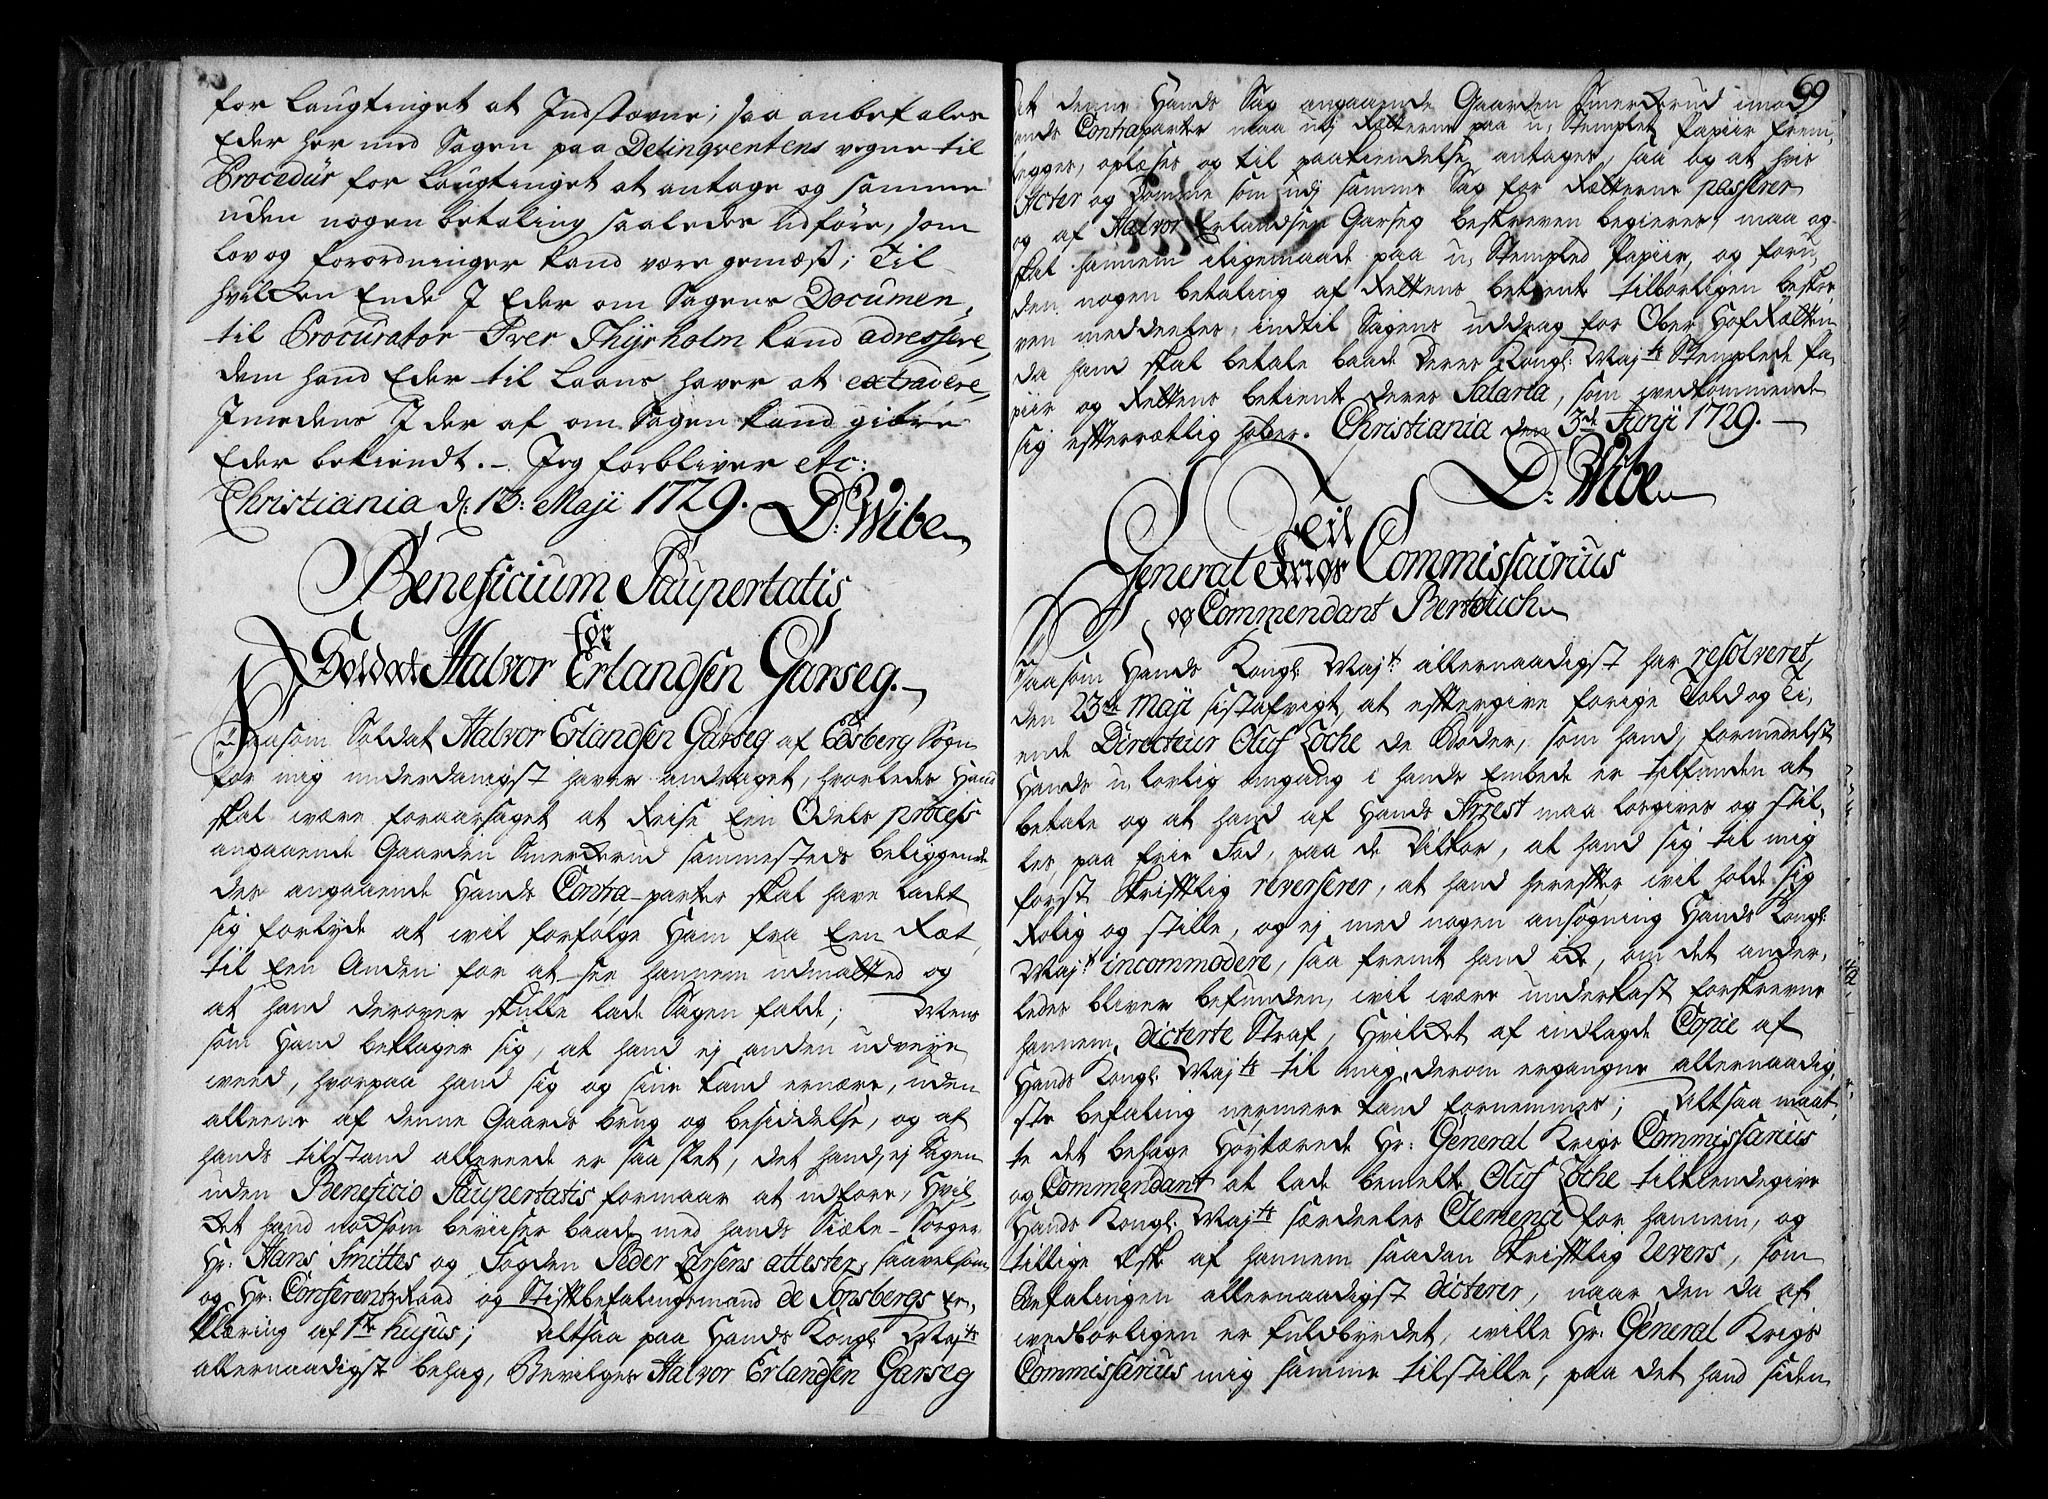 for Laugtinget at Indstævne; saa anbefales
Eder her med Sagen paa Delinqventens vegne til
Procedür for Laugtinget at antage og samme
uden nogen betaling saaledes udføre, som
Lov og forordninger kand være gemæs; Til
hvilken Ende I Eder om Sagens Documen-
til Procurator Iver Thyrholm kand adressere,
dem hand Eder til Laans haver at extradere,
Imedens I der af om Sagen kand give
Eder bekiendt. – Jeg forbliver etc:
Christiania d: 13: Maji 1729. D: Wibe
Beneficium Paupertatis
for
Soldat Halvor Erlandsen Garseg. –
Saasom Soldat Halvor Erlandsen Garseg af Edsberg Sogn
for mig underdanigst haver andraget, hvorledes Hand
skal være foraarsaget at Reise Een Odels process
angaaende Gaarden Smerkerud sammesteds beliggende
des angaaende Hands Contra-parter skal have ladet
sig forlyde at wil forfølge Ham fra Een Ræt
til Een Anden for at see hannem udmatted og
at hand derover skulle lade Sagen falde; Mens
som Hand beklager sig, at hand ej anden udveye
weed, hvorpaa hand sig og sine kand ernære, uden
alleene af denne Gaards brug og besiddelse, og at
hands tilstand allereede er saa slet, det hand ej Sagen
uden Beneficio Paupertatis formaar at udføre, Hvil-
ket hand noksom beviiser baade med hands Siæle-Sørger
Hr: Hans Smittes og Fogden Peder Ersens attester, saavelsom
og Hr: ConferentzRaad og Stiftbefalingsmand de Tonsbergs Er-
klæring af 1ste hujus; Altsaa paa Hands Kongl: Majts
allernaadigst behag, Bevilges Halvor Erlandsen Garseg
69
at denne Hands Sag angaaende Gaarden Smerkerud imod
hands Contraparter maa udj Rætterne paa u-Stemplet Papiir frem-
legges, oplæses og til paakiendelse antages, saa og at hvis
Acter og Domme som udj samme Sag for Rætterne passerer
og af Halvor Erlandsen Garseg beskreven begieres, maa og
skal hannem iligemaade paa u-Stempled Papiir, og foru-
den nogen betaling af Rettens betient tilbørligen beskre-
ven meddeeles, indtil Sagens uddrag for Ober Hof Rætten
da hand skal betale baade Deres Kongl: Majts Stemplede Pa-
piir og Rettens betient deres Salaria, som wedkommende
sig efterrætlig haver. Christiania den 3de Junji 1729. –
D: Wibe
Til
General Krigs Commissairius
og Commendant Bertouch
Saasom Hands Kongl: Majt: allernaadigst har resolveret,
den 23de Maji sistafvigt, at eftergive forige Told og Ti-
ende Directeur Oluf Loche de Bøder, som hand, formedelst
Hands u-lovlig omgang i hands Embede er tilfunden at
betale og at hand af Hands Arrest maa losgives og stil-
les paa frie Fod, paa de Vilkor, at hand sig til mig
først Skriftlig reverserer, at hand herefter wil holde sig
Rolig og stille, og ej med nogen ansøgning Hands Kongl:
Majt: incommodere, saa fremt hand ik, om det ander-
ledes bliver befunden, wil wære underkast forskrevne
hannem dicterte Straf, Hvilket af indlagde Copie af
Hands Kongl: Majts til mig derom ergangne allernaadig-
ste befaling nermere kand fornemmes; Altsaa maat-
te det behage Høytærede Hr: General Krigs Commissarius
og Commendant at lade bemelte Oluf Loche tilkiendegive
Hands Kongl: Majts særdeeles Clemence for hannem, og
tillige Æske af hannem saadan Skriftlig Revers, som
Befalingen allernaadigst dicterer, naar den da af
wedbørligen er fuldbyrdet, wille Hr: General Krigs
Commissarius mig samme tilstille, paa det hand siden